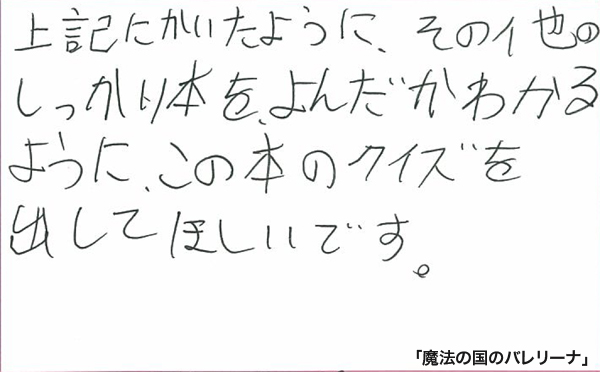 上記にかいたように、その他の
しっかり本を、よんだかわかる
ように、この本のクイズを
出してほしいです。
「魔法の国のバレリーナ」